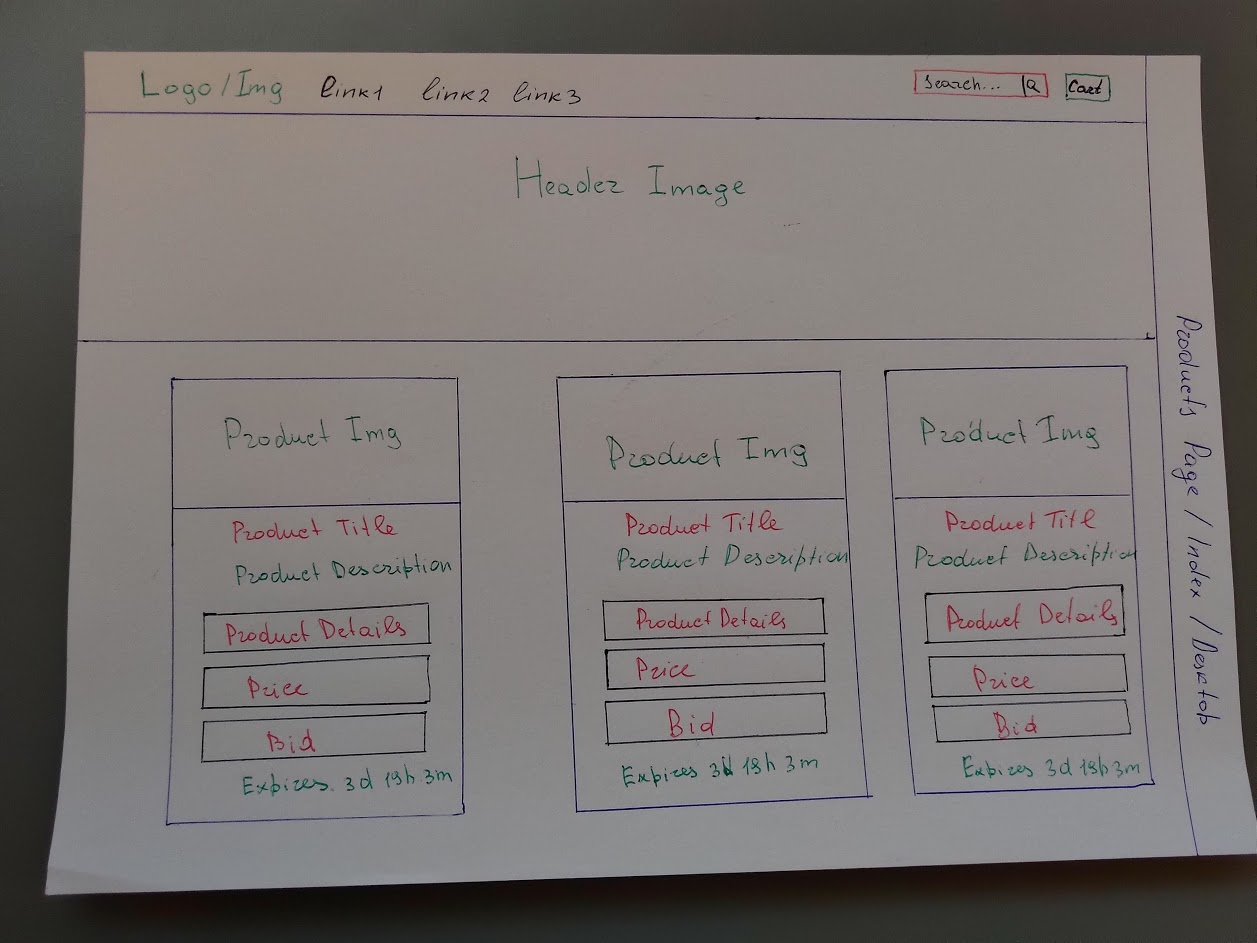 Logo/Img link1 link2 link3 Search... Cart
Header Image
Product Img
Product Title
Product Description
Product Details
Price
Bid
Expires. 3d 19h 3m
Product Img
Product Title
Product Description
Product Details
Price
Bid
Expires 3d 19h 3m
Product Img
Product Titl
Product Description
Product Details
Price
Bid
Expires 3d 19h 3m
Products Page / Index / Desktop